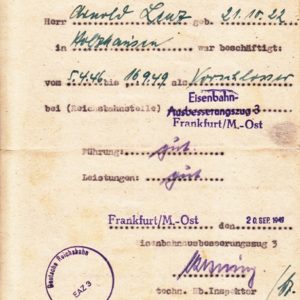 Herr Arnold Lenz geb. 21.10.22
in Holzhausen war beschäftigt:
vom 5.4.46 bis 16.9.49 als Vorschlosser
Eisenbahn-
bei (Reichsbahnstelle) Ausbesserungszug 3
Frankfurt/M.-Ost
Führung: gut
Leistungen: gut
Frankfurt/M.-Ost den 20. SEP. 1949
Eisenbahnausbesserungszug 3
techn. Rb.Inspektor
Deutsche Reichsbahn
EAZ 3